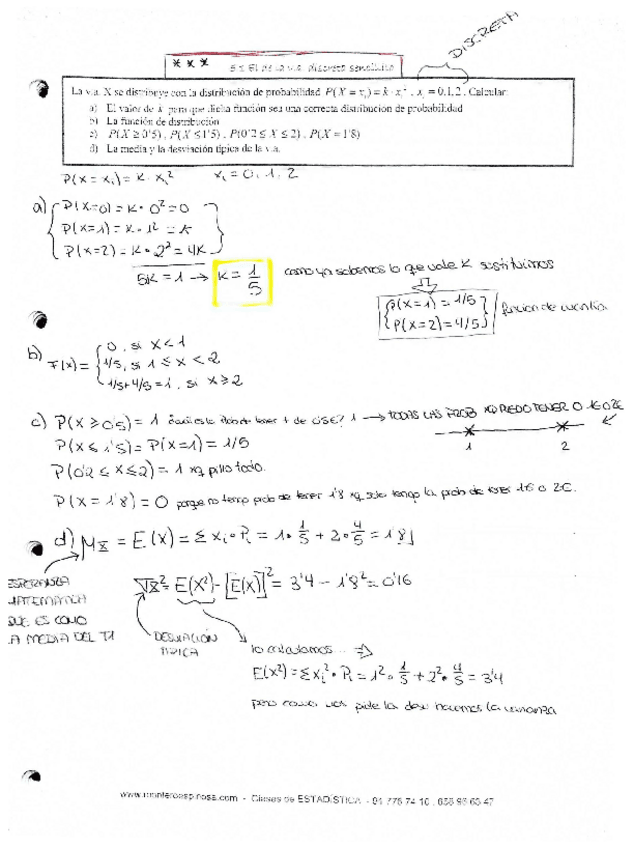 DISCRETA
*** 5.2 El de la v.a. discreta sencillito
La v.a. X se distribuye con la distribución de probabilidad P(X = xᵢ) = k · xᵢ² , xᵢ = 0,1,2 . Calcular:
a) El valor de k para que dicha función sea una correcta distribución de probabilidad
b) La función de distribución
c) P(X ≥ 0'5) , P(X ≤ 1'5) , P(0'2 ≤ X ≤ 2) , P(X = 1'8)
d) La media y la desviación típica de la v.a.
P(X = xᵢ) = K · xᵢ² xᵢ = 0, 1, 2
a) P(X=0) = K · 0² = 0
P(X=1) = K · 1² = K
P(X=2) = K · 2² = 4K
5K = 1 → K = 1/5 como ya sabemos lo que vale K sustituimos
P(X=1) = 1/5
P(X=2) = 4/5 función de cuantía
b) F(x) = 0, si x < 1
1/5, si 1 ≤ x < 2
1/5 + 4/5 = 1, si x ≥ 2
c) P(X ≥ 0'5) = 1 de tener + de 0'5€? 1 → TODAS LAS PROB XQ PUEDO TENER O 1€ O 2€
1 2
P(X ≤ 1'5) = P(X=1) = 1/5
P(0'2 ≤ X ≤ 2) = 1 xq pillo todo.
P(X = 1'8) = 0 porque no tengo prob de tener 1'8 xq solo tengo la prob de tener 1€ o 2€.
d) μx = E(X) = Σ xᵢ · Pᵢ = 1 · 1/5 + 2 · 4/5 = 1'8
ESPERANZA
MATEMÁTICA
QUE ES COMO
LA MEDIA DEL T1
σx² = E(X²) - [E(X)]² = 3'4 - 1'8² = 0'16
DESVIACIÓN
TÍPICA
lo calculamos... ⇒
E(X²) = Σ xᵢ² · Pᵢ = 1² · 1/5 + 2² · 4/5 = 3'4
pero como nos pide la desv hacemos la varianza
www.monteroespinosa.com - Clases de ESTADÍSTICA - 91 776 74 10 , 656 96 60 47